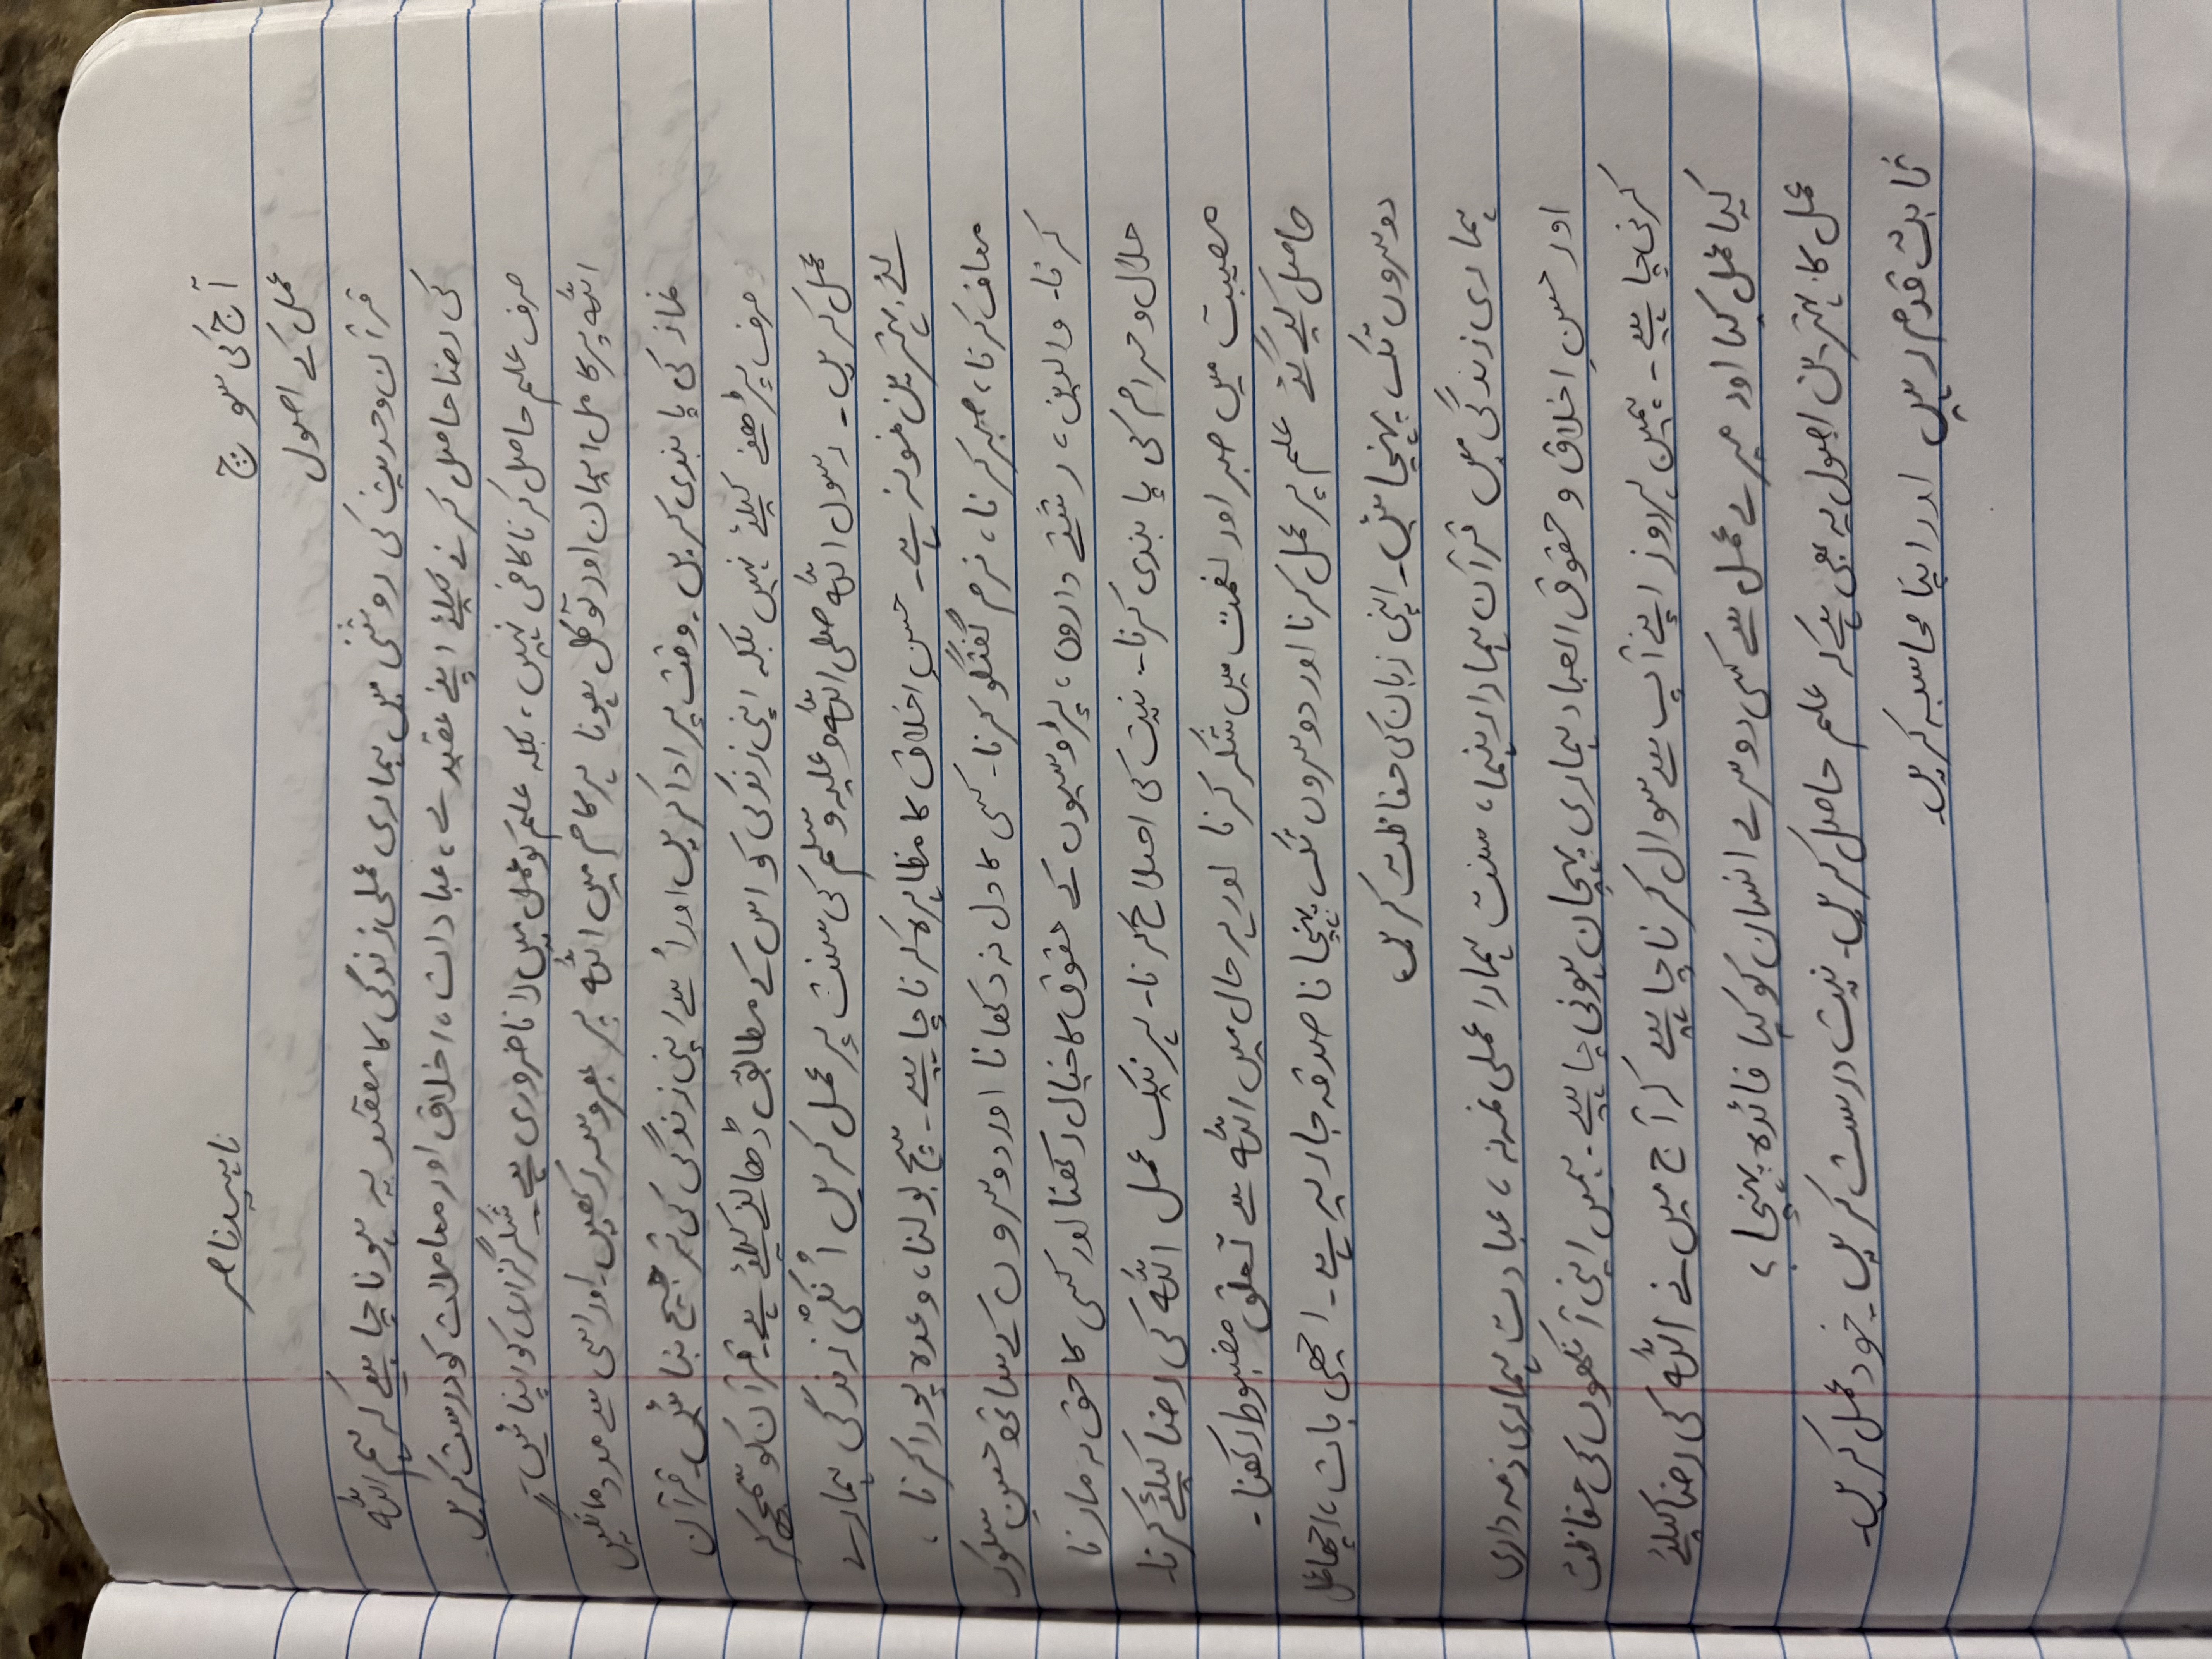 آج کی سوچ
ناہید ناصر
عمل کے اصول
قرآن و حدیث کی روشنی میں ہماری عملی زندگی کا مقصد یہ ہونا چاہیے کہ ہم اللہ
کی رضا حاصل کرنے کیلئے اپنے عقیدے، عبادت، اخلاق اور معاملات کو درست کریں
صرف علم حاصل کرنا کافی نہیں، بلکہ علم کو عمل میں لانا ضروری ہے۔ شکر گزاری کو اپنائیں۔
اللہ پر کامل ایمان اور توکل ہونا ہر کام میں اللہ پر بھروسہ رکھیں۔ اور اسی سے مدد مانگیں
نماز کی پابندی کریں۔ وقت پر ادا کریں اور اُسے اپنی زندگی کی ترجیح بنائیں۔ قرآن
صرف پڑھنے کیلئے نہیں بلکہ اپنی زندگی کو اس کے مطابق ڈھالنے کیلئے ہے۔ قرآن کو سمجھ کر
عمل کریں۔ رسول اللہ صلی اللہ وعلیہ وسلم کی سنت پر عمل کریں اُنکی زندگی ہمارے
لئے بہترین نمونہ ہے۔ حسنِ اخلاق کا مظاہرہ کرنا چاہیے۔ سچ بولنا، وعدہ پورا کرنا،
معاف کرنا، صبر کرنا، نرم گفتگو کرنا۔ کسی کا دل نہ دکھانا اور دوسروں کے ساتھ حسنِ سلوک
کرنا۔ والدین، رشتے داروں، پڑوسیوں کے حقوق کا خیال رکھنا اور کسی کا حق نہ مارنا
حلال و حرام کی پابندی کرنا۔ نیت کی اصلاح کرنا۔ ہر نیک عمل اللہ کی رضا کیلئے کرنا۔
مصیبت میں صبر اور نعمت میں شکر کرنا اور ہر حال میں اللہ سے تعلق مضبوط رکھنا۔
حاصل کیے گئے علم پر عمل کرنا اور دوسروں تک پہنچانا صدقہ جاریہ ہے۔ اچھی بات، اچھا عمل
دوسروں تک پہنچائیں۔ اپنی زبان کی حفاظت کریں
ہماری زندگی میں قرآن ہمارا رہنما، سنت ہمارا عملی نمونہ، عبادت ہماری ذمہ داری
اور حسنِ اخلاق و حقوق العباد ہماری پہچان ہونی چاہیے۔ ہمیں اپنی آنکھوں کی حفاظت
کرنی چاہیے۔ ہمیں ہر روز اپنے آپ سے سوال کرنا چاہیے کہ آج میں نے اللہ کی رضا کیلئے
کیا عمل کیا اور میرے عمل سے کسی دوسرے انسان کو کیا فائدہ پہنچا؟
عمل کا بہترین اصول یہ بھی ہے کہ علم حاصل کریں۔ نیت درست کریں۔ خود عمل کریں۔
ثابت قدم رہیں اور اپنا محاسبہ کریں۔